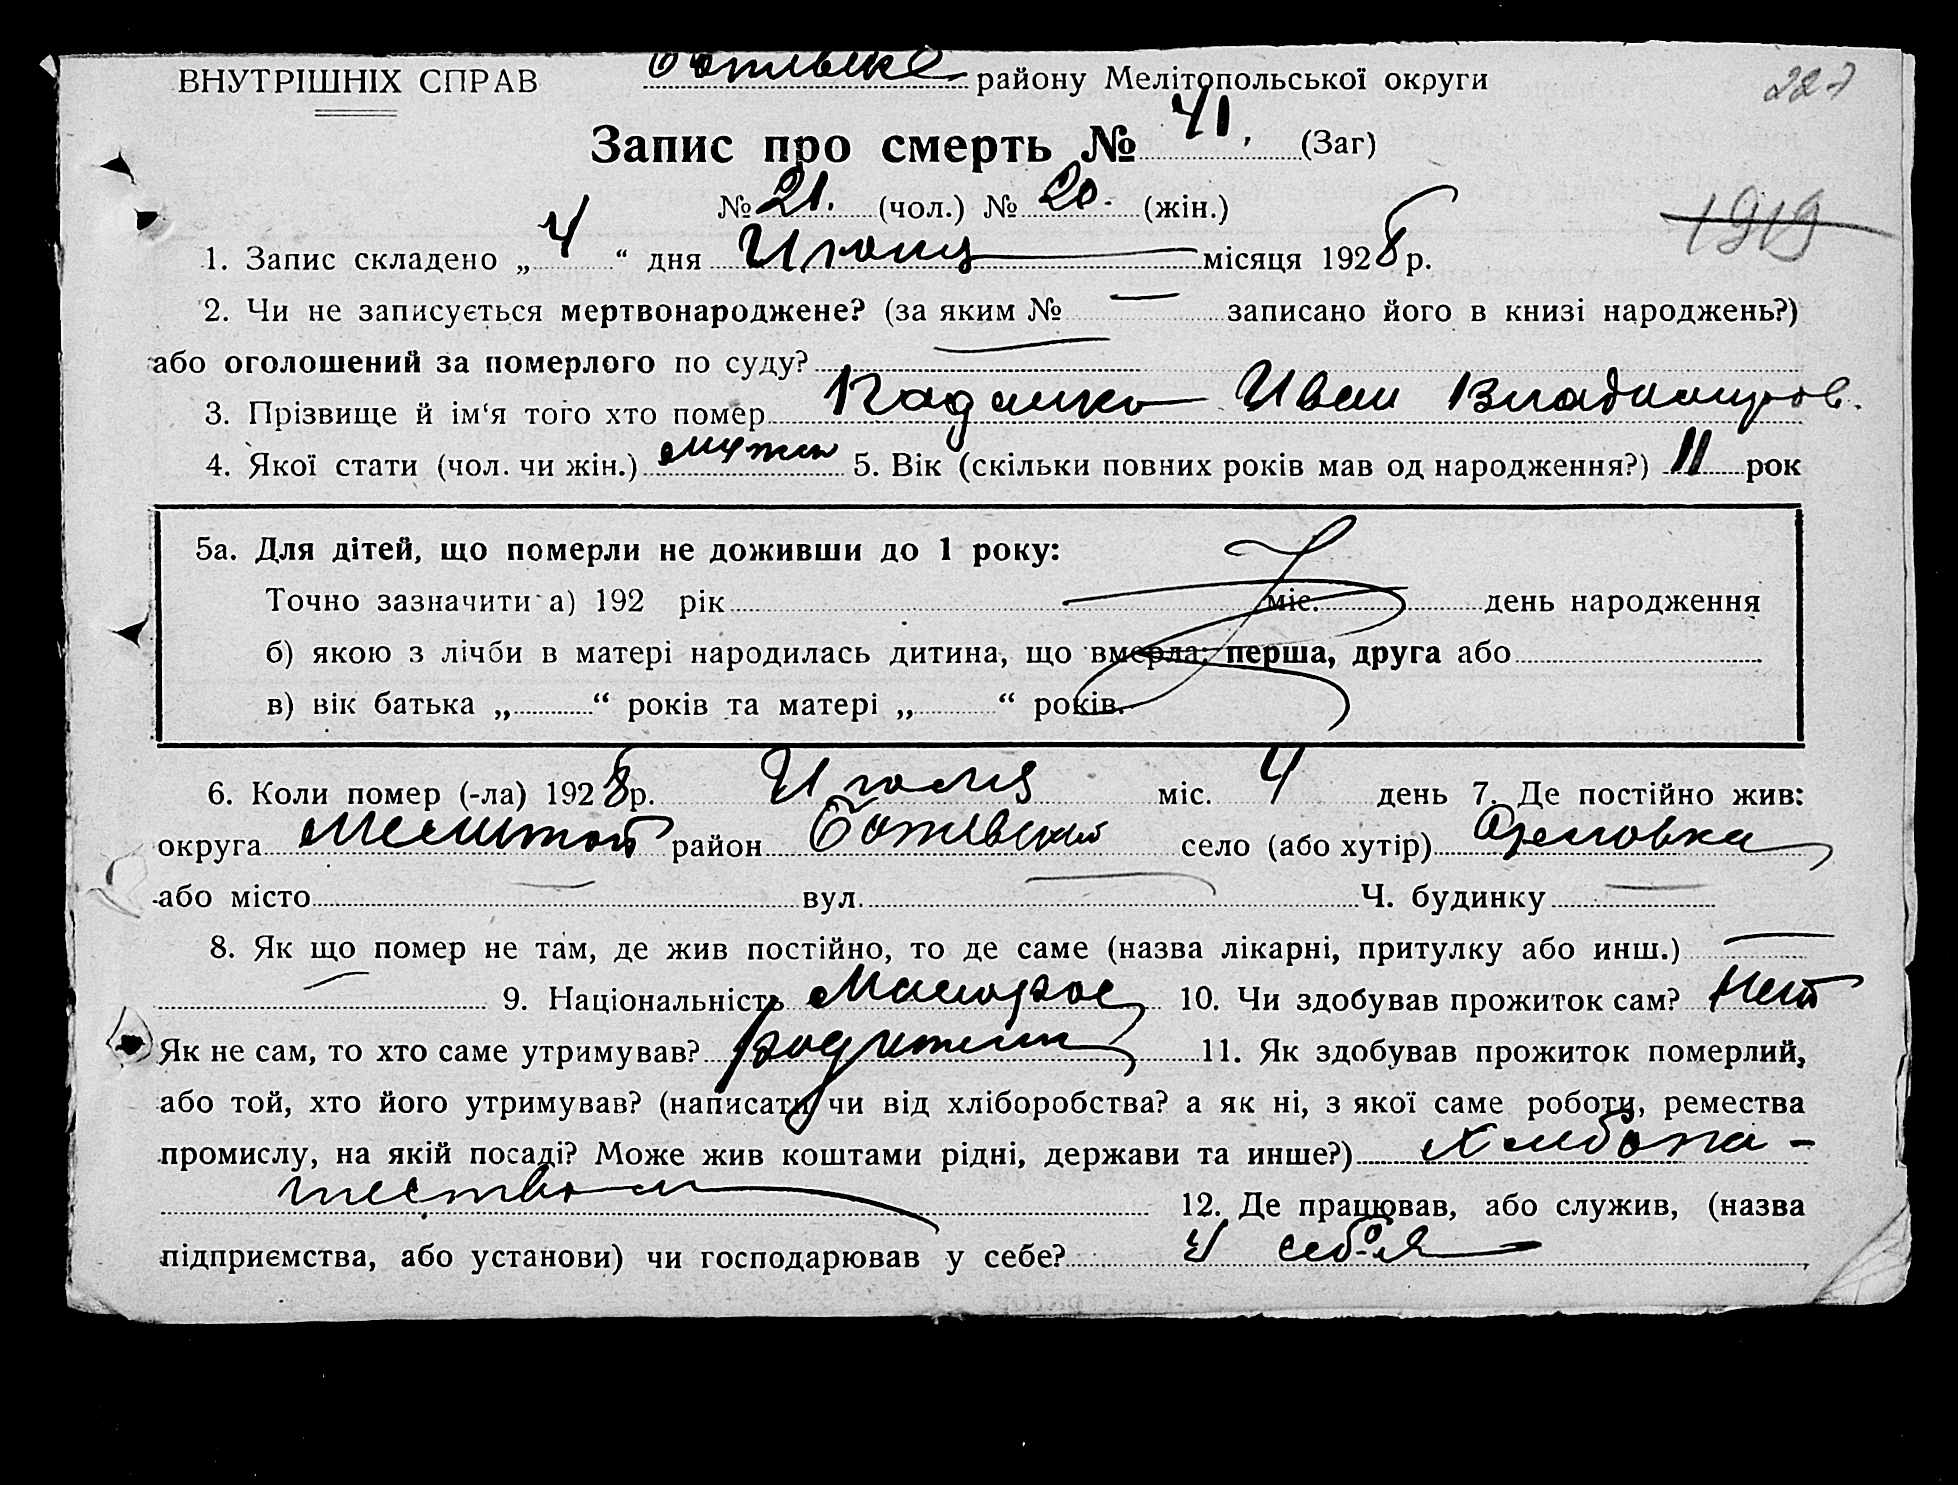 ВНУТРІШНІХ СПРАВ району Мелітопольської округи
227
Запис про смерть № 41. (Заг)
№ 21. (чол.) № 20. (жін.)
1919
1. Запис складено „ 4 “ дня місяця 1928 р.
2. Чи не записується мертвонароджене? (за яким № — записано його в книзі народжень?)
або оголошений за померлого по суду? —
3. Прізвище й ім‘я того хто помер Иван Владимиров.
4. Якої стати (чол. чи жін.) мужск 5. Вік (скільки повних років мав од народження?) 11 рок
5а. Для дітей, що померли не доживши до 1 року:
Точно зазначити а) 192 рік міс. день народження
б) якою з лічби в матері народилась дитина, що вмерла: перша, друга або
в) вік батька „ “ років та матері „ “ років.
6. Коли помер (-ла) 1928 р. міс. 4 день 7. Де постійно жив:
округа Мелитоп район Ботиевский село (або хутір) Орловка
або місто — вул. — Ч. будинку —
8. Як що помер не там, де жив постійно, то де саме (назва лікарні, притулку або инш.) —
— 9. Національність Малорос 10. Чи здобував прожиток сам? Нет
Як не сам, то хто саме утримував? родители 11. Як здобував прожиток померлий,
або той, хто його утримував? (написати чи від хліборобства? а як ні, з якої саме роботи, ремества
промислу, на якій посаді? Може жив коштами рідні, держави та инше?) хлебопа-
шеством 12. Де працював, або служив, (назва
підприємства, або установи) чи господарював у себе? У себя